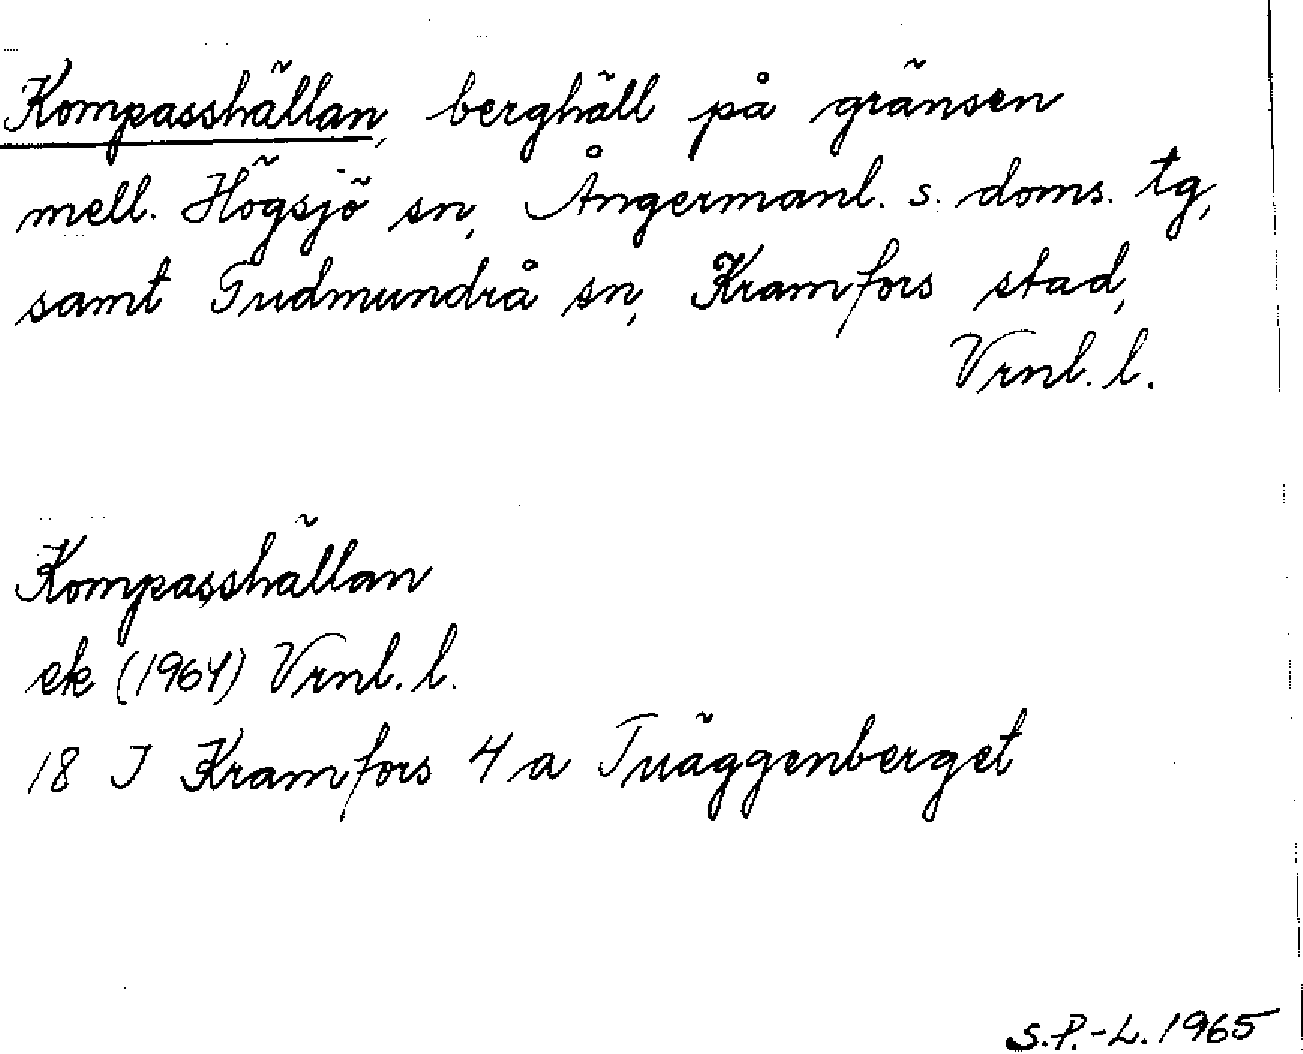 Kompasshällan, berghäll på gränsen
mell. Högsjö sn, Ångermanl. s. doms. tg,
samt Gudmundrå sn, Kramfors stad,
Vrnl. l.
Kompasshällan
ek (1964) Vrnl. l.
18 I Kramfors 4 a Tväggenberget
S.P.-L. 1965